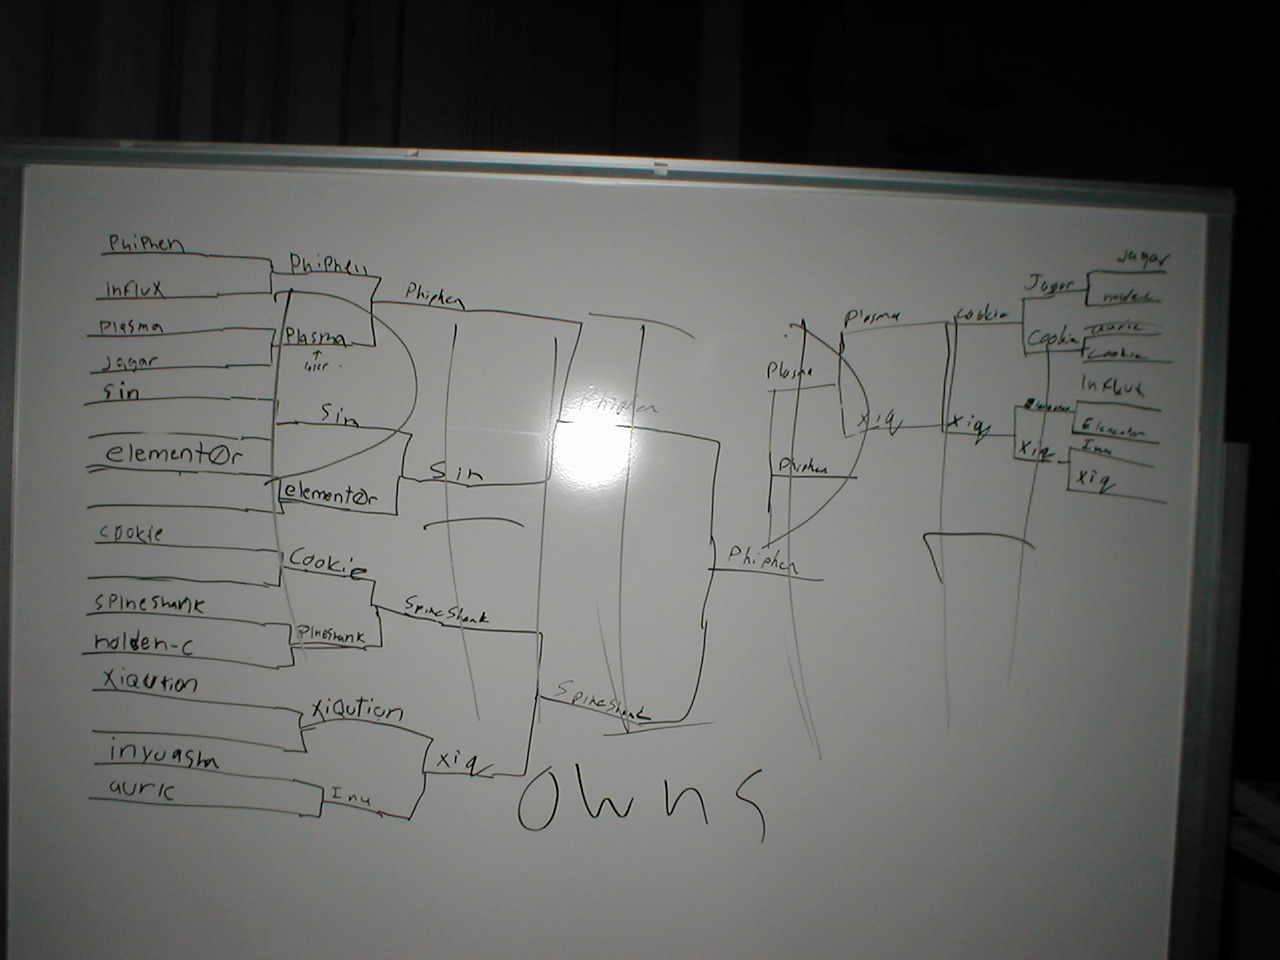 Phiphen
influx
Plasma
Jagar
Sin
elementOr
cookie
Spineshank
holden-c
XiQution
inyuasha
auric
Phiphen
Plasma
loser
Sin
elementOr
Cookie
PineShank
XiQution
Inu
Phiphen
Sin
SpineShank
Xiq
Phiphen
SpineShank
Phiphen
owns
Plasma
Phiphen
Plasma
Xiq
Cookie
Xiq
Jagar
Cookie
Xiq
Jagar
holden
auric
Cookie
Influx
Elementor
Inu
Xiq